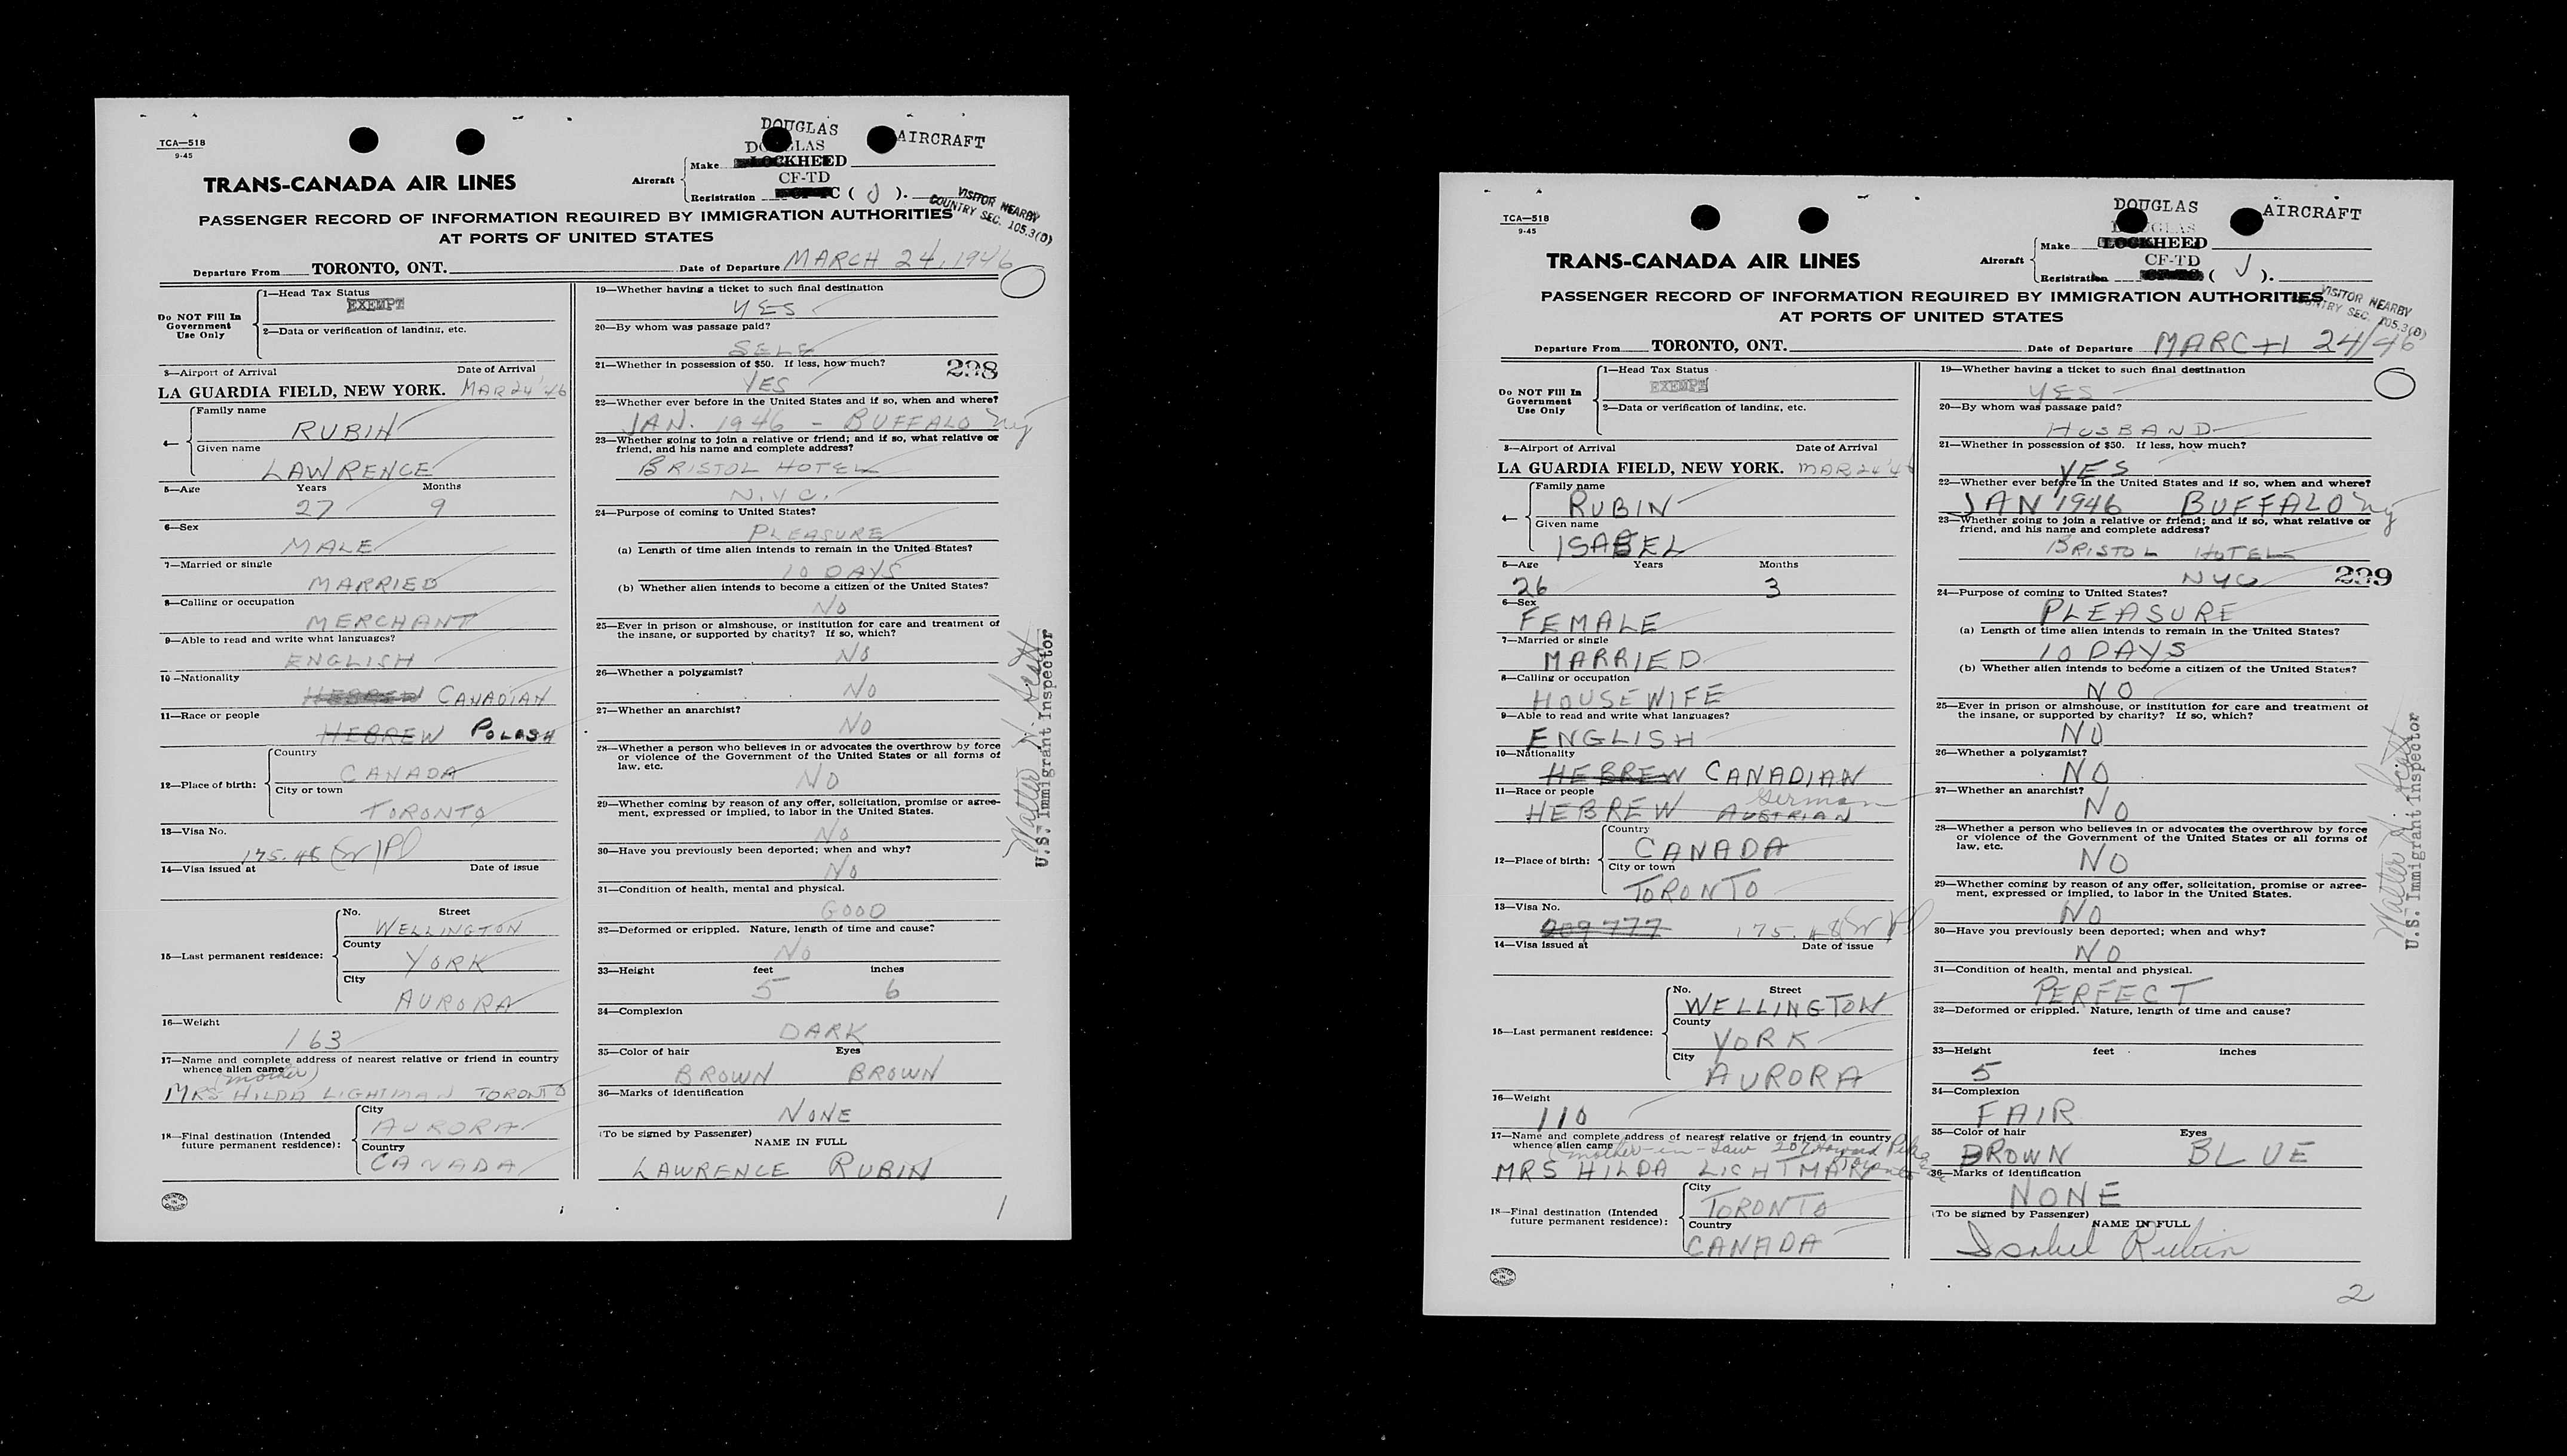 TCA—518
9-45
DOUGLAS AIRCRAFT
DOUGLAS
Make LOCKHEED
CF-TD
Aircraft
Registration ( J ).
TRANS-CANADA AIR LINES
VISITOR NEARBY
COUNTRY SEC. 105.3(D)
PASSENGER RECORD OF INFORMATION REQUIRED BY IMMIGRATION AUTHORITIES
AT PORTS OF UNITED STATES
Departure From TORONTO, ONT. Date of Departure MARCH 24, 1946
Do NOT Fill In
Government
Use Only
1—Head Tax Status
EXEMPT
2—Data or verification of landing, etc.
3—Airport of Arrival Date of Arrival
LA GUARDIA FIELD, NEW YORK. MAR 24 '46
4—
Family name
RUBIN
Given name
LAWRENCE
5—Age Years Months
27 9
6—Sex
MALE
7—Married or single
MARRIED
8—Calling or occupation
MERCHANT
9—Able to read and write what languages?
ENGLISH
10—Nationality
HEBREW CANADIAN
11—Race or people
HEBREW POLISH
12—Place of birth:
Country
CANADA
City or town
TORONTO
13—Visa No.
175.48
14—Visa issued at Date of issue
15—Last permanent residence:
No. Street
WELLINGTON
County
YORK
City
AURORA
16—Weight
163
17—Name and complete address of nearest relative or friend in country
whence alien came
(mother)
MRS HILDA LIGHTMAN TORONTO
18—Final destination (Intended
future permanent residence):
City
AURORA
Country
CANADA
PRINTED IN CANADA
19—Whether having a ticket to such final destination
YES
20—By whom was passage paid?
SELF
21—Whether in possession of $50. If less, how much?
298
YES
22—Whether ever before in the United States and if so, when and where?
JAN. 1946 - BUFFALO NY
23—Whether going to join a relative or friend; and if so, what relative or
friend, and his name and complete address?
BRISTOL HOTEL
N.Y.C.
24—Purpose of coming to United States?
PLEASURE
(a) Length of time alien intends to remain in the United States?
10 DAYS
(b) Whether alien intends to become a citizen of the United States?
NO
25—Ever in prison or almshouse, or institution for care and treatment of
the insane, or supported by charity? If so, which?
NO
26—Whether a polygamist?
NO
27—Whether an anarchist?
NO
28—Whether a person who believes in or advocates the overthrow by force
or violence of the Government of the United States or all forms of
law, etc.
NO
29—Whether coming by reason of any offer, solicitation, promise or agree-
ment, expressed or implied, to labor in the United States.
NO
30—Have you previously been deported; when and why?
NO
31—Condition of health, mental and physical.
GOOD
32—Deformed or crippled. Nature, length of time and cause?
NO
33—Height feet inches
5 6
34—Complexion
DARK
35—Color of hair Eyes
BROWN BROWN
36—Marks of identification
NONE
(To be signed by Passenger)
NAME IN FULL
LAWRENCE RUBIN
Walter N.
U.S. Immigrant Inspector
1
TCA—518
9-45
DOUGLAS AIRCRAFT
DOUGLAS
Make LOCKHEED
CF-TD
Aircraft
Registration ( J ).
TRANS-CANADA AIR LINES
VISITOR NEARBY
COUNTRY SEC. 105.3(D)
PASSENGER RECORD OF INFORMATION REQUIRED BY IMMIGRATION AUTHORITIES
AT PORTS OF UNITED STATES
Departure From TORONTO, ONT. Date of Departure MARCH 24/46
Do NOT Fill In
Government
Use Only
1—Head Tax Status
EXEMPT
2—Data or verification of landing, etc.
3—Airport of Arrival Date of Arrival
LA GUARDIA FIELD, NEW YORK. MAR 24 '46
4—
Family name
RUBIN
Given name
ISABEL
5—Age Years Months
26 3
6—Sex
FEMALE
7—Married or single
MARRIED
8—Calling or occupation
HOUSEWIFE
9—Able to read and write what languages?
ENGLISH
10—Nationality
HEBREW CANADIAN
11—Race or people
German
HEBREW AUSTRIAN
12—Place of birth:
Country
CANADA
City or town
TORONTO
13—Visa No.
209777 175.48
14—Visa issued at Date of issue
15—Last permanent residence:
No. Street
WELLINGTON
County
YORK
City
AURORA
16—Weight
110
17—Name and complete address of nearest relative or friend in country
whence alien came
(mother-in-law 207 Howard Park
MRS HILDA LIGHTMAN Toronto
18—Final destination (Intended
future permanent residence):
City
TORONTO
Country
CANADA
PRINTED IN CANADA
19—Whether having a ticket to such final destination
YES
20—By whom was passage paid?
HUSBAND
21—Whether in possession of $50. If less, how much?
YES
22—Whether ever before in the United States and if so, when and where?
JAN 1946 BUFFALO NY
23—Whether going to join a relative or friend; and if so, what relative or
friend, and his name and complete address?
BRISTOL HOTEL
NYC 299
24—Purpose of coming to United States?
PLEASURE
(a) Length of time alien intends to remain in the United States?
10 DAYS
(b) Whether alien intends to become a citizen of the United States?
NO
25—Ever in prison or almshouse, or institution for care and treatment of
the insane, or supported by charity? If so, which?
NO
26—Whether a polygamist?
NO
27—Whether an anarchist?
NO
28—Whether a person who believes in or advocates the overthrow by force
or violence of the Government of the United States or all forms of
law, etc.
NO
29—Whether coming by reason of any offer, solicitation, promise or agree-
ment, expressed or implied, to labor in the United States.
NO
30—Have you previously been deported; when and why?
NO
31—Condition of health, mental and physical.
PERFECT
32—Deformed or crippled. Nature, length of time and cause?
33—Height feet inches
5
34—Complexion
FAIR
35—Color of hair Eyes
BROWN BLUE
36—Marks of identification
NONE
(To be signed by Passenger)
NAME IN FULL
Isabel Rubin
Walter N.
U.S. Immigrant Inspector
2